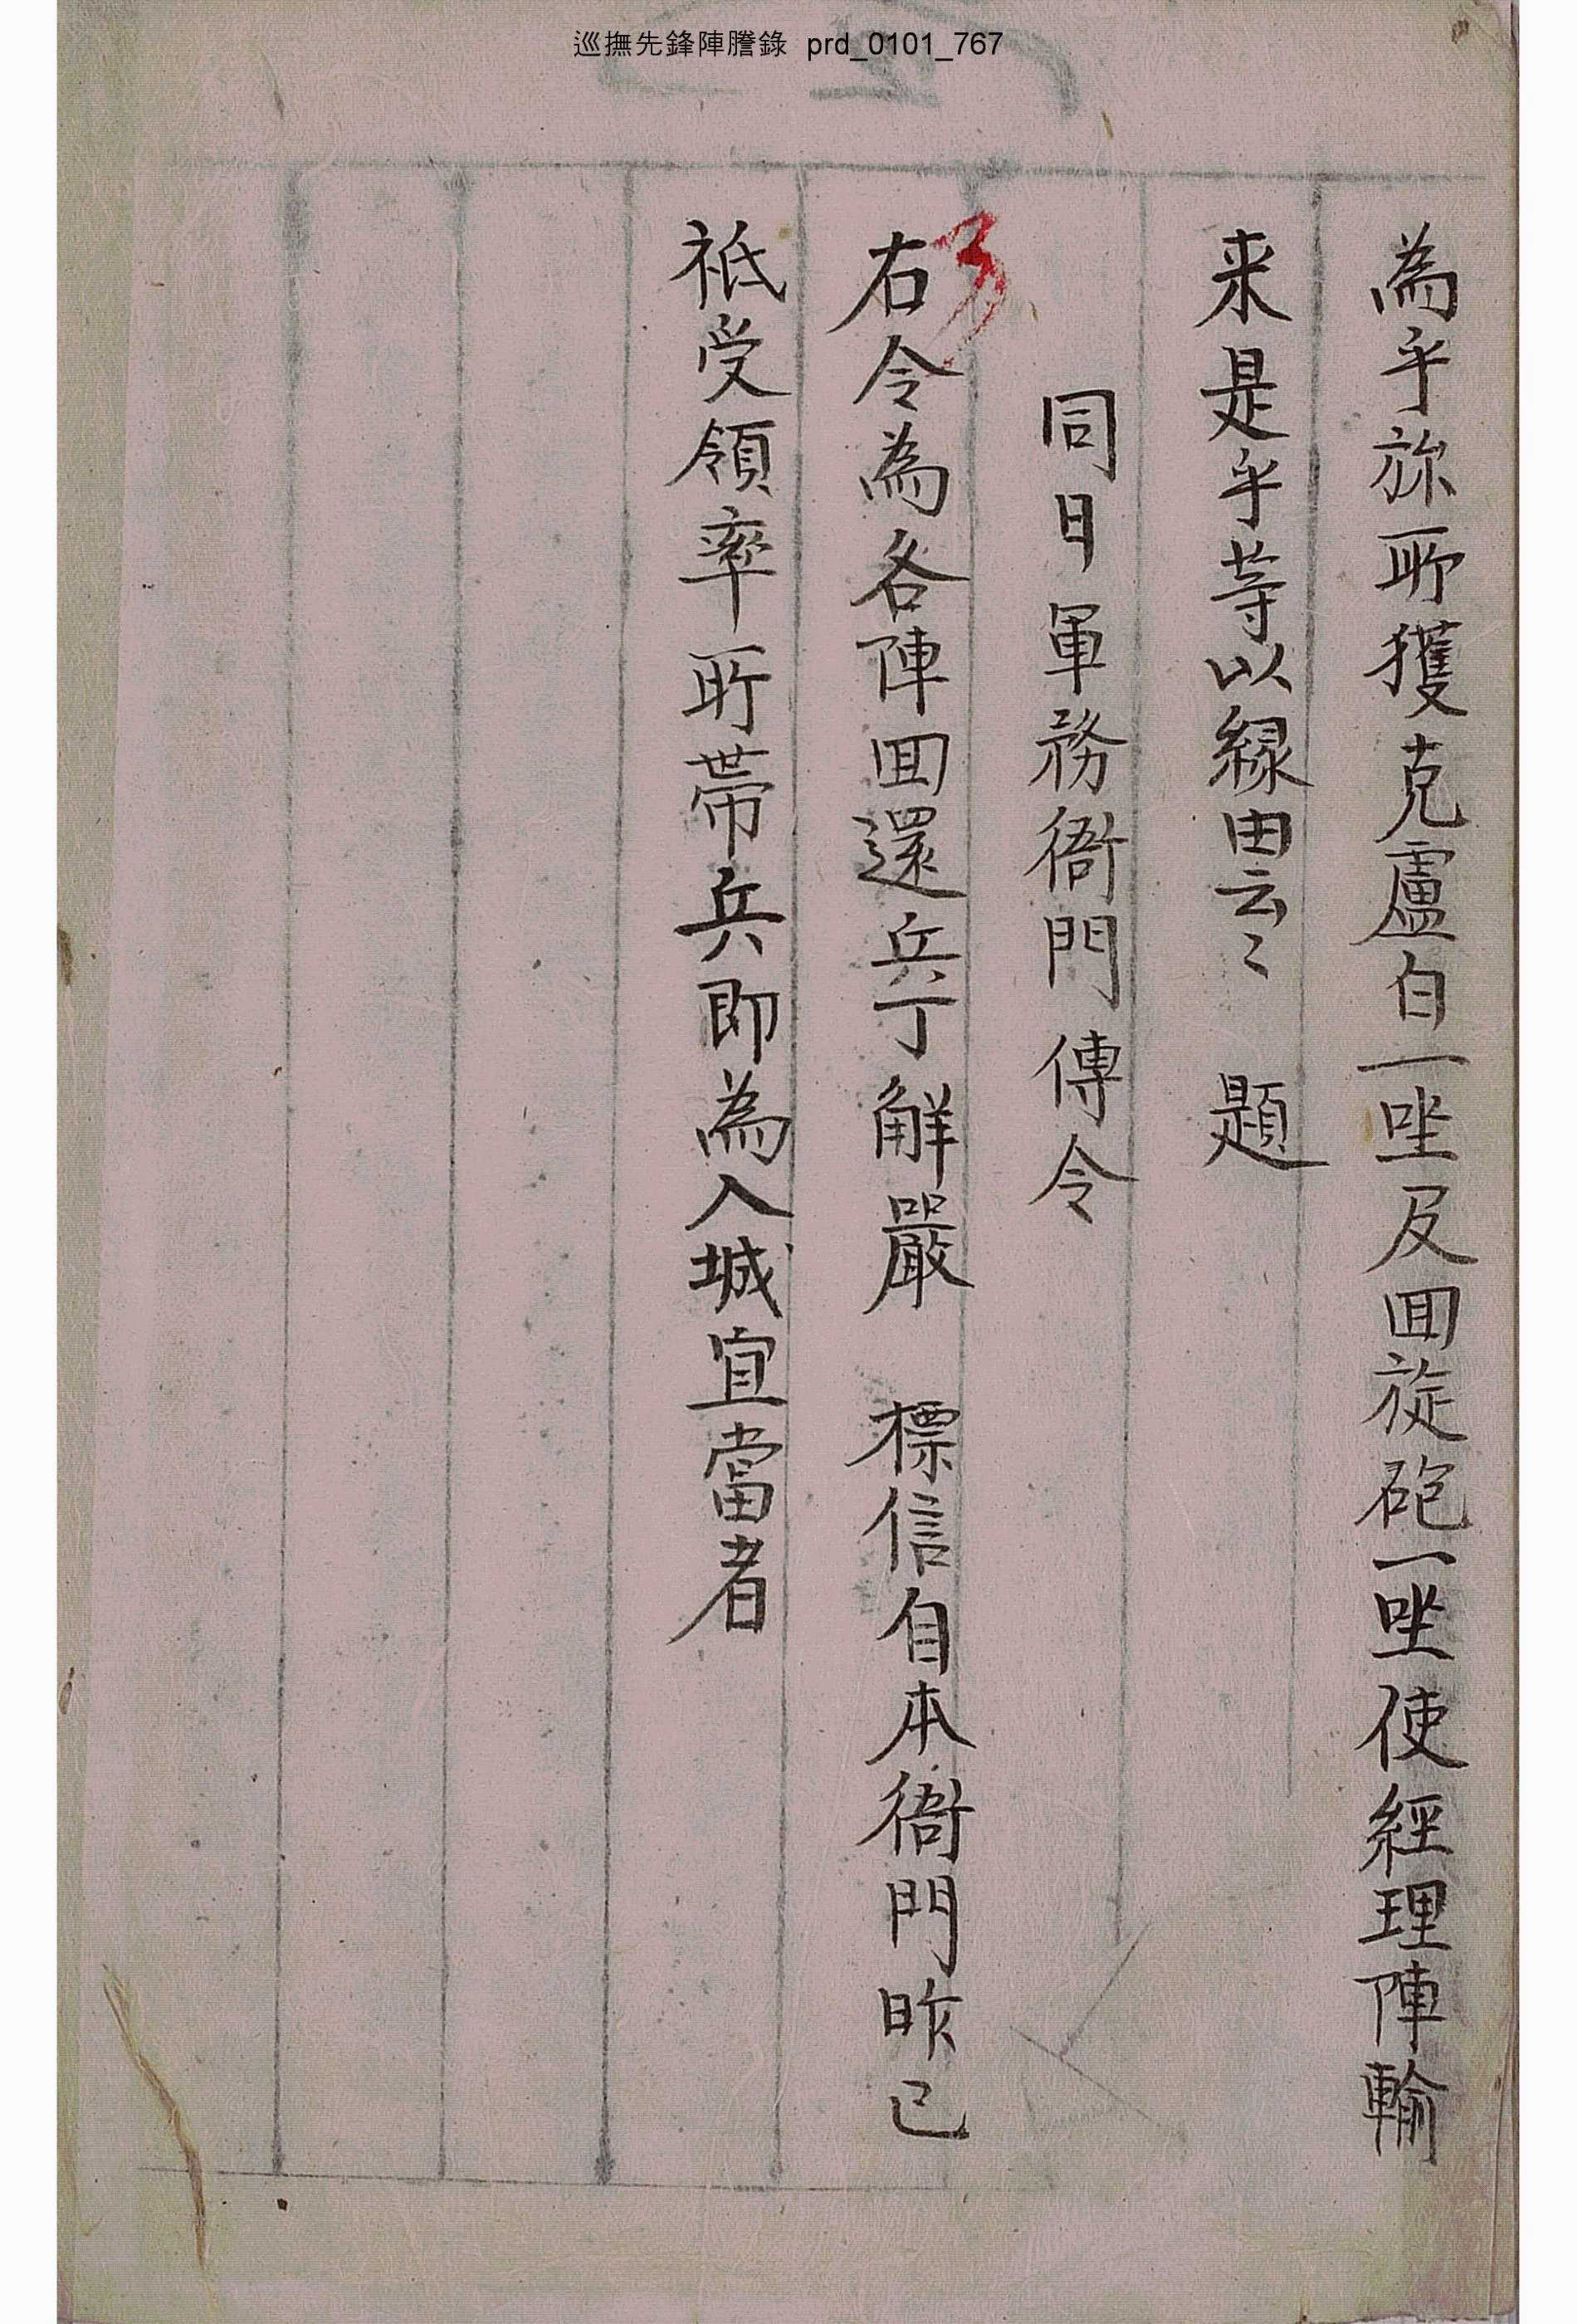 巡撫先鋒陣謄錄 prd_0101_767
為乎旀所獲克虜白一坐及回旋砲一坐使經理陣輸
来是乎等以緣由云〻 題
同日軍務衙門傳令
右令為各陣回還兵丁解嚴 標信自本衙門昨已
祗受領率所帶兵即為入城宜當者